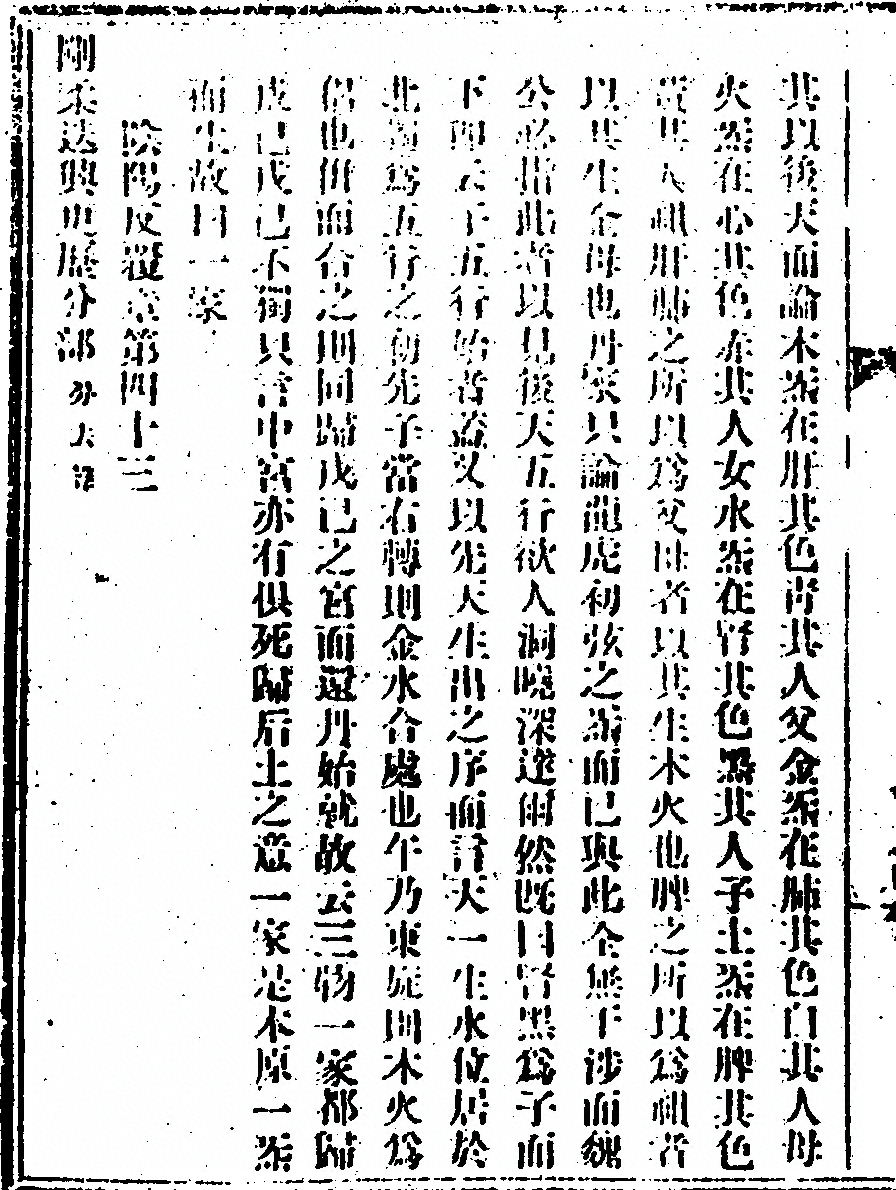 其以後天而論木炁在肝其色青其人父金炁在肺其色白其人母
火炁在心其色赤其人女水炁在腎其色黑其人子土炁在脾其色
黃其人祖肝肺之所以爲父母者以其生木火也脾之所以爲祖者
以其生金母也丹家只論龍虎初弦之炁而已與此全無干涉而魏
公必指此者以見後天五行欲人洞曉深達爾然既曰腎黑爲子而
下卽云子五行始者蓋又以先天生出之序而言天一生水位居於
北爲五行之初先子當右轉則金水合處也午乃東旋則木火爲
侶也併而合之則同歸戊己之宮而還丹始就故云三物一家都歸
戊己戊己不獨只言中宮亦有俱死歸后土之意一家是本原一炁
而生故曰一家
陰陽反覆章第四十三
剛柔迭興更歷分部